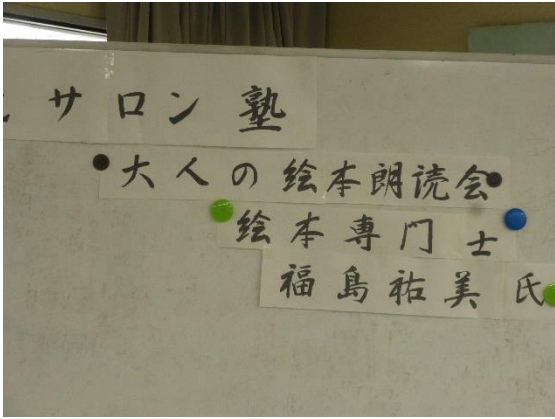 サロン塾
大人の絵本朗読会
絵本専門士
福島祐美氏